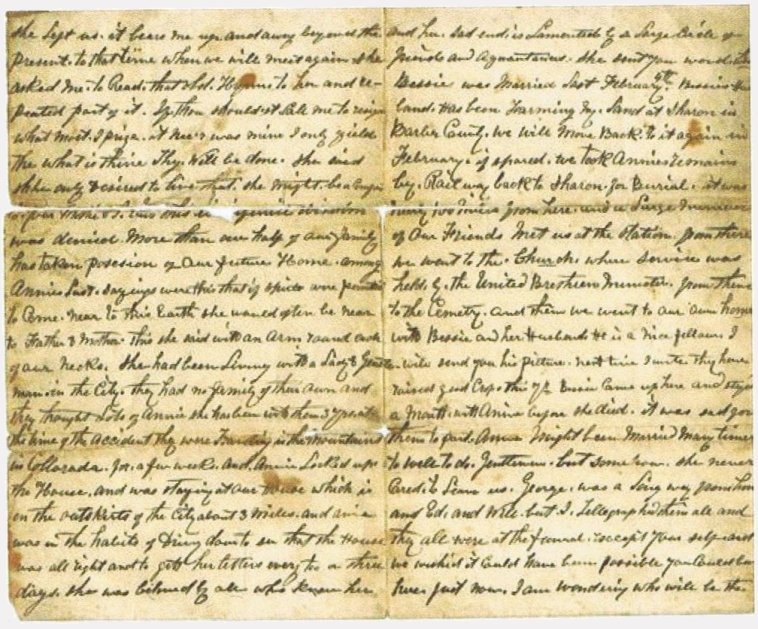 she left us. it bears me up and away beyond the
present. to that time when we will meet again. she
asked me to Read that old Hymn to her and re-
peated part of it. If thou shouldst Call me to resign
what most I prize. it ne'er was mine I only yield
the what is thine Thy Will be done. She said
she only desired to live that she might be a
was denied. More than one half of our family
has taken possesion of our future Home. among
Annies Last. sayings were this that if spirits are permited
to Come near to this Earth she would often be near
to Father & Mother. this she said with an Arm round each
of our Necks. She had been Living with a Lady & Gentle
man in the City. they had no family of their own and
they thought Lots of Annie she has been with them 3 years at
the time of the accident they were in the Mountains
in Collorada. for a few weeks. and Annie Locked up
the House. and was staying at our House which is
on the outskirts of the City about 3 Miles. and
was in the habits of Driving down to see that the House
was all right and to get her letters every two or three
days. she was beloved by all who knew her
and her sad end is Lamented by a Large Circle of
friends and Aquantences. She sent you
Bessie was Married Last February 9th. Bessies Hus
band. Has been Farming My Land at Sharon in
Barber County. we will Move Back to it again in
February. if spared. we took Annies remains
by Rail way back to Sharon for Burial. it was
100 Miles from here. and a Large Number
of Our Friends Met us at the Station. from there
we went to the Church. where service was
held by the United Brethren Minister. from there
to the Cemetry. and then we went to our own home
with Bessie and her Husband He is a Nice fellow. I
will send you his picture. next time I write they have
raised good Crops this yr. Bessie Came up here and stayed
a Month with Annie before she died. it was sad for
them to part. Annie Might been Married Many times
to well to do. Gentlemen. but some how. she never
Cared to Leave us. George was a Long way from home
and Ed. and Will. but I Tellegraphed them all and
they all were at the funeral. except your self and
we wished it Could Have been possible you Could been
here just now. I am wondering who will be the